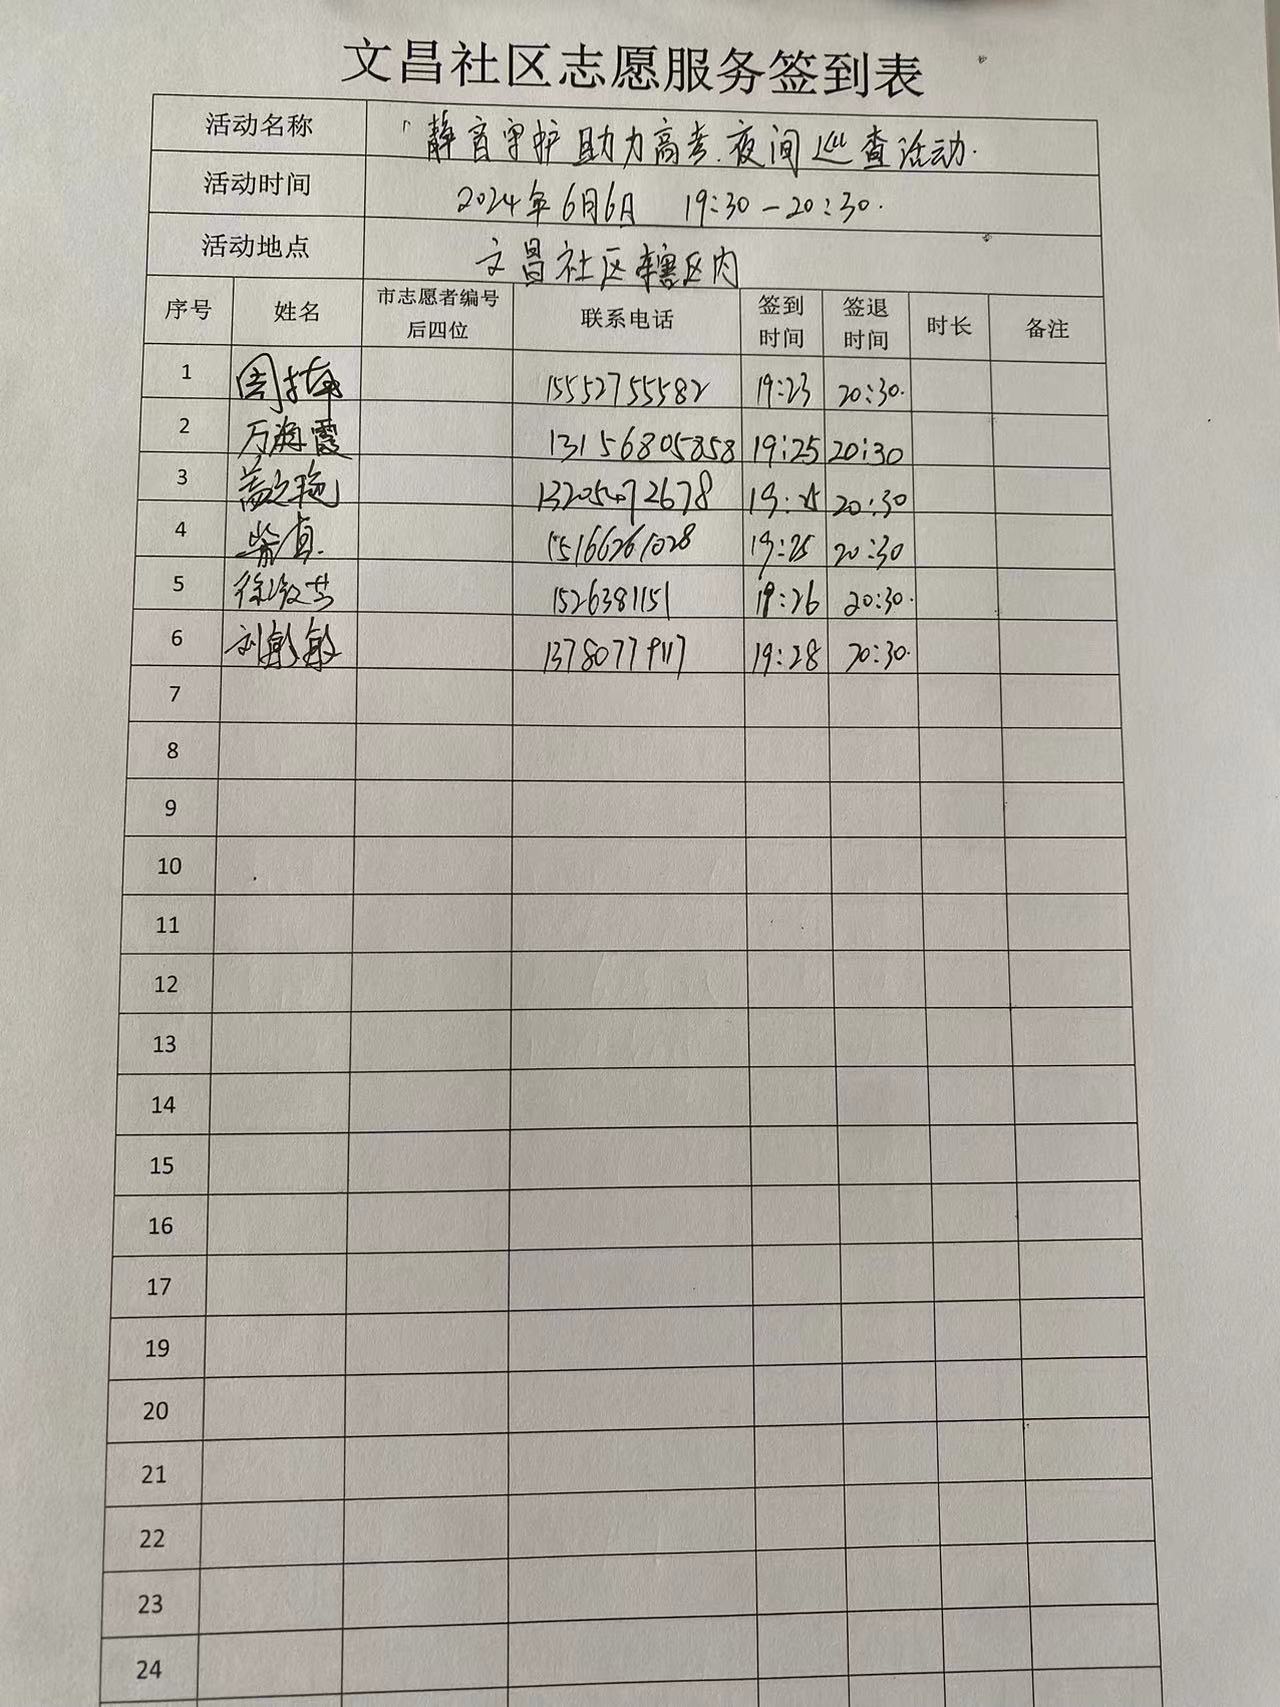 文昌社区志愿服务签到表
活动名称 「静音守护 助力高考.夜间巡查活动.
活动时间 2024年6月6日 19:30-20:30.
活动地点 文昌社区辖区内
序号 姓名 市志愿者编号后四位 联系电话 签到时间 签退时间 时长 备注
1 15552755582 19:23 20:30.
2 万海霞 13156805858 19:25 20:30
3 13205472678 19:25 20:30
4 柴真. 15166261028 19:25 20:30
5 1526381151 19:26 20:30.
6 刘敏敏 13780779117 19:28 20:30.
7
8
9
10
11
12
13
14
15
16
17
19
20
21
22
23
24